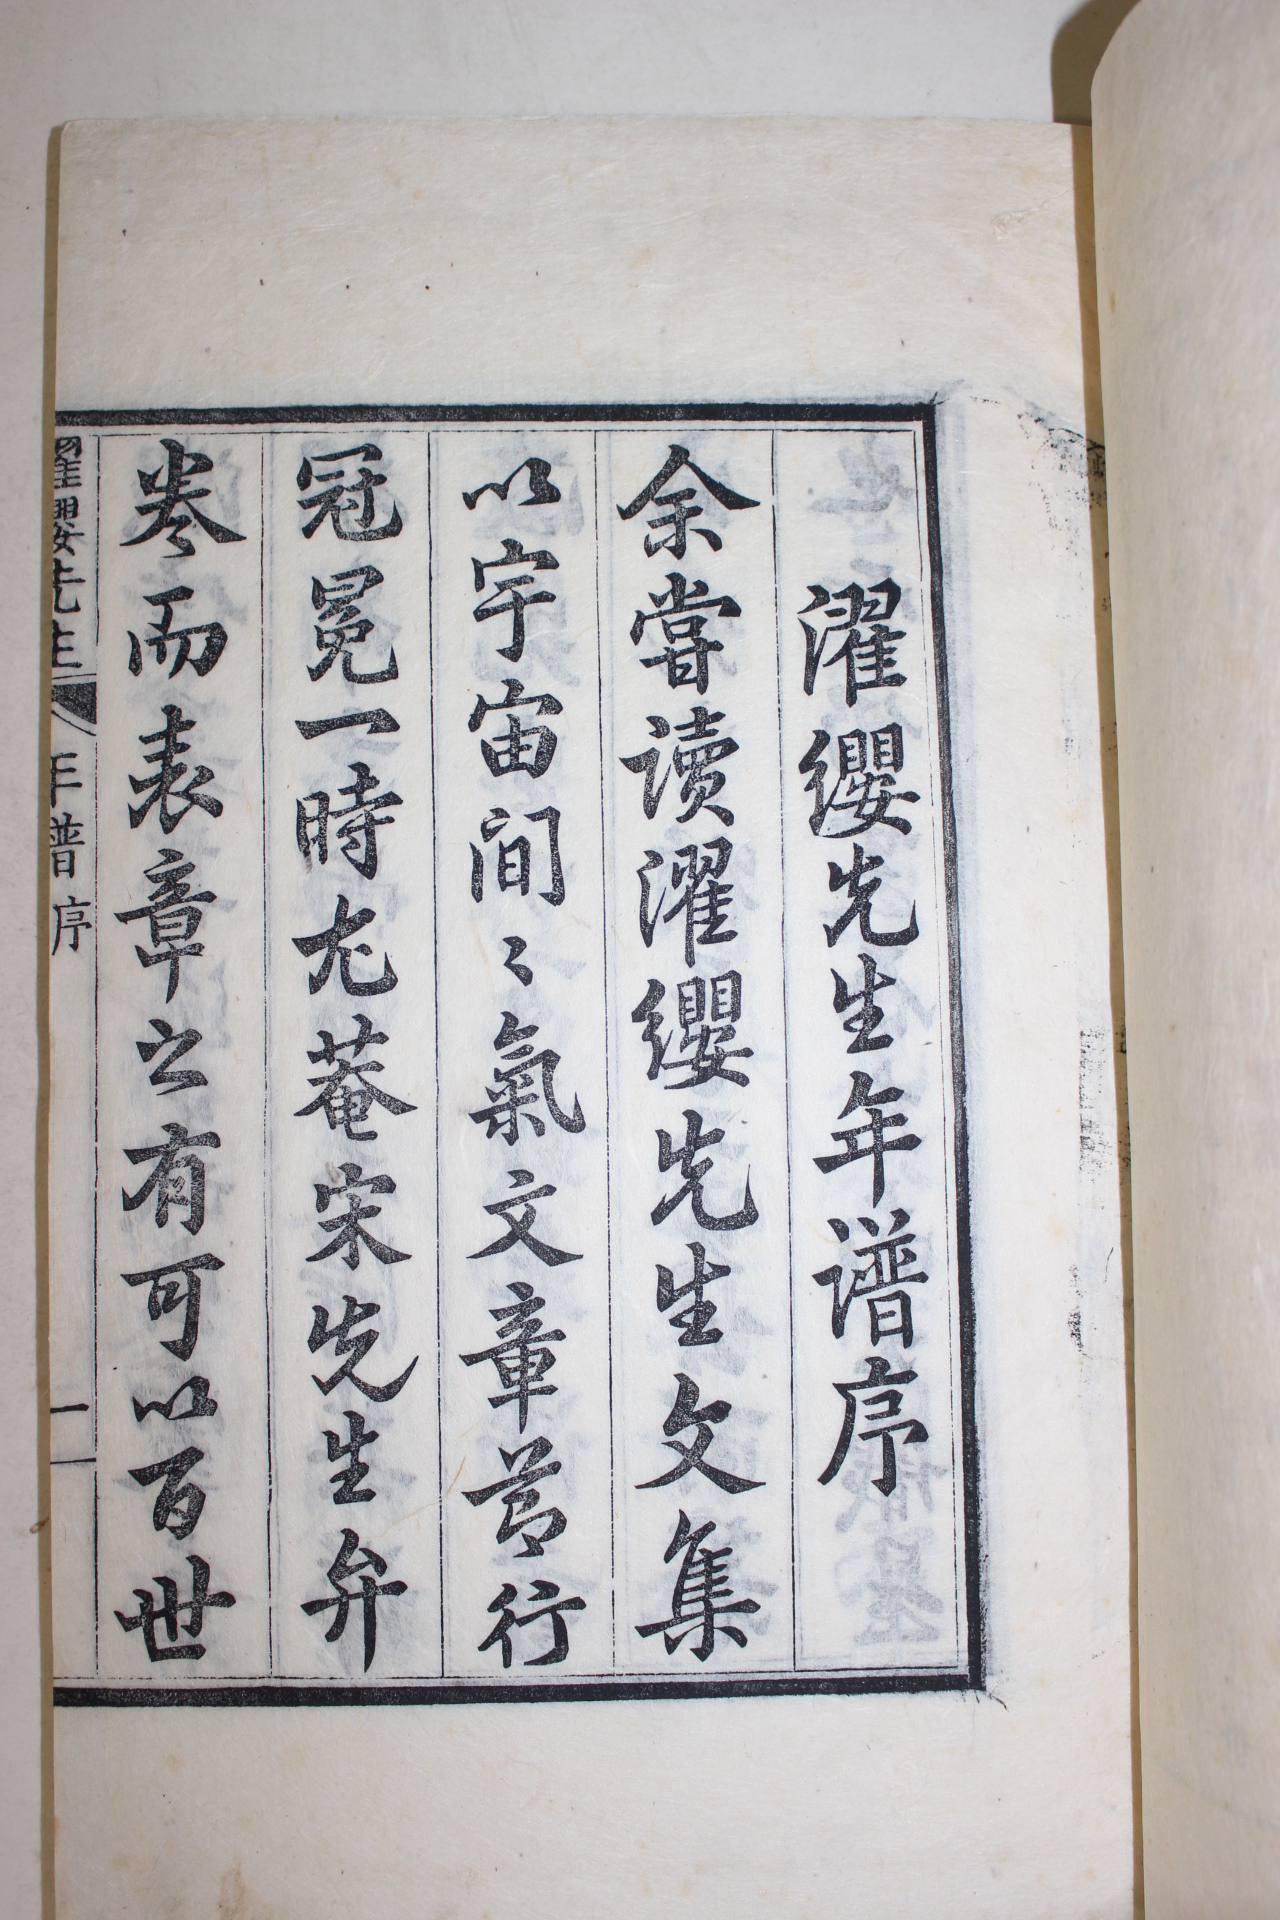 濯纓先生年譜序
余嘗讀濯纓先生文集
以宇宙間〻氣文章節行
冠冕一時尤菴宋先生弁
卷而表章之有可以百世
濯纓先生
年譜序
一